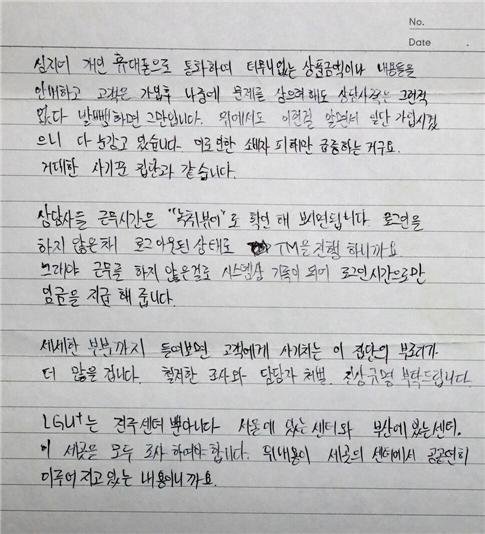 No.
Date
심지어 개인 휴대폰으로 통화하며 터무니없는 상품금액이나 내용들을
안내하고 고객은 가입후 나중에 문제를 삼으려 해도 상담사쪽은 그런적
없다 발뺌하면 그만입니다. 위에서도 이런걸 알면서 일단 가입시켰
으니 다 눈감고 있습니다. 이로인한 소비자 피해만 급증하는 거구요.
거대한 사기꾼 집단과 같습니다.
상담사들 근무시간은 "녹취뷰어"로 확인 해 보시면됩니다. 로그인을
하지 않은채 로그아웃된 상태로 TM을 진행 하니까요
그래야 근무를 하지 않은걸로 시스템상 기록이 되어 로그인시간으로만
임금을 지급 해 줍니다.
세세한 부분까지 들여보면 고객에게 사기치는 이 집단의 부조리가
더 많을 겁니다. 철저한 조사와 담당자 처벌. 진상규명 부탁드립니다.
LGU+는 전주센터 뿐아니라 서울에 있는센터와 부산에있는센터.
이 세곳을 모두 조사 하여야 합니다. 위내용이 세곳의 센터에서 공공연히
이루어 지고 있는 내용이니까요.